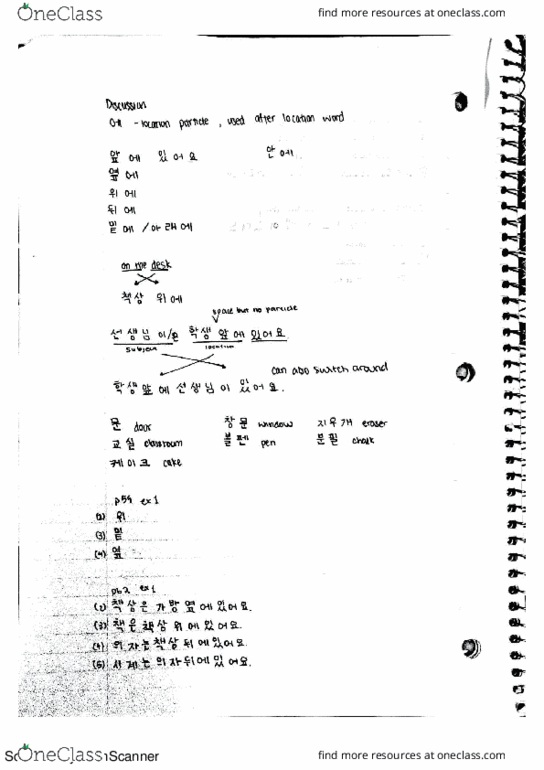 OneClass
find more resources at oneclass.com
Discussion
에 - location particle, used after location word
앞에 있어요 안에
옆에
위에
뒤에
밑에 / 아래에
on the desk
책상 위에
space but no particle
선생님이/은 학생 앞에 있어요
subject location
can also switch around
학생 앞에 선생님이 있어요.
문 door 창문 window 지우개 eraser
교실 classroom 볼펜 pen 분필 chalk
케이크 cake
p59 ex1
(2) 위
(3) 밑
(4) 옆
p62 ex1
(2) 책상은 가방 옆에 있어요.
(3) 책은 책상 위에 있어요.
(4) 의자는 책상 뒤에 있어요.
(5) 시계는 의자 뒤에 있어요.
OneClass
Scanner
find more resources at oneclass.com